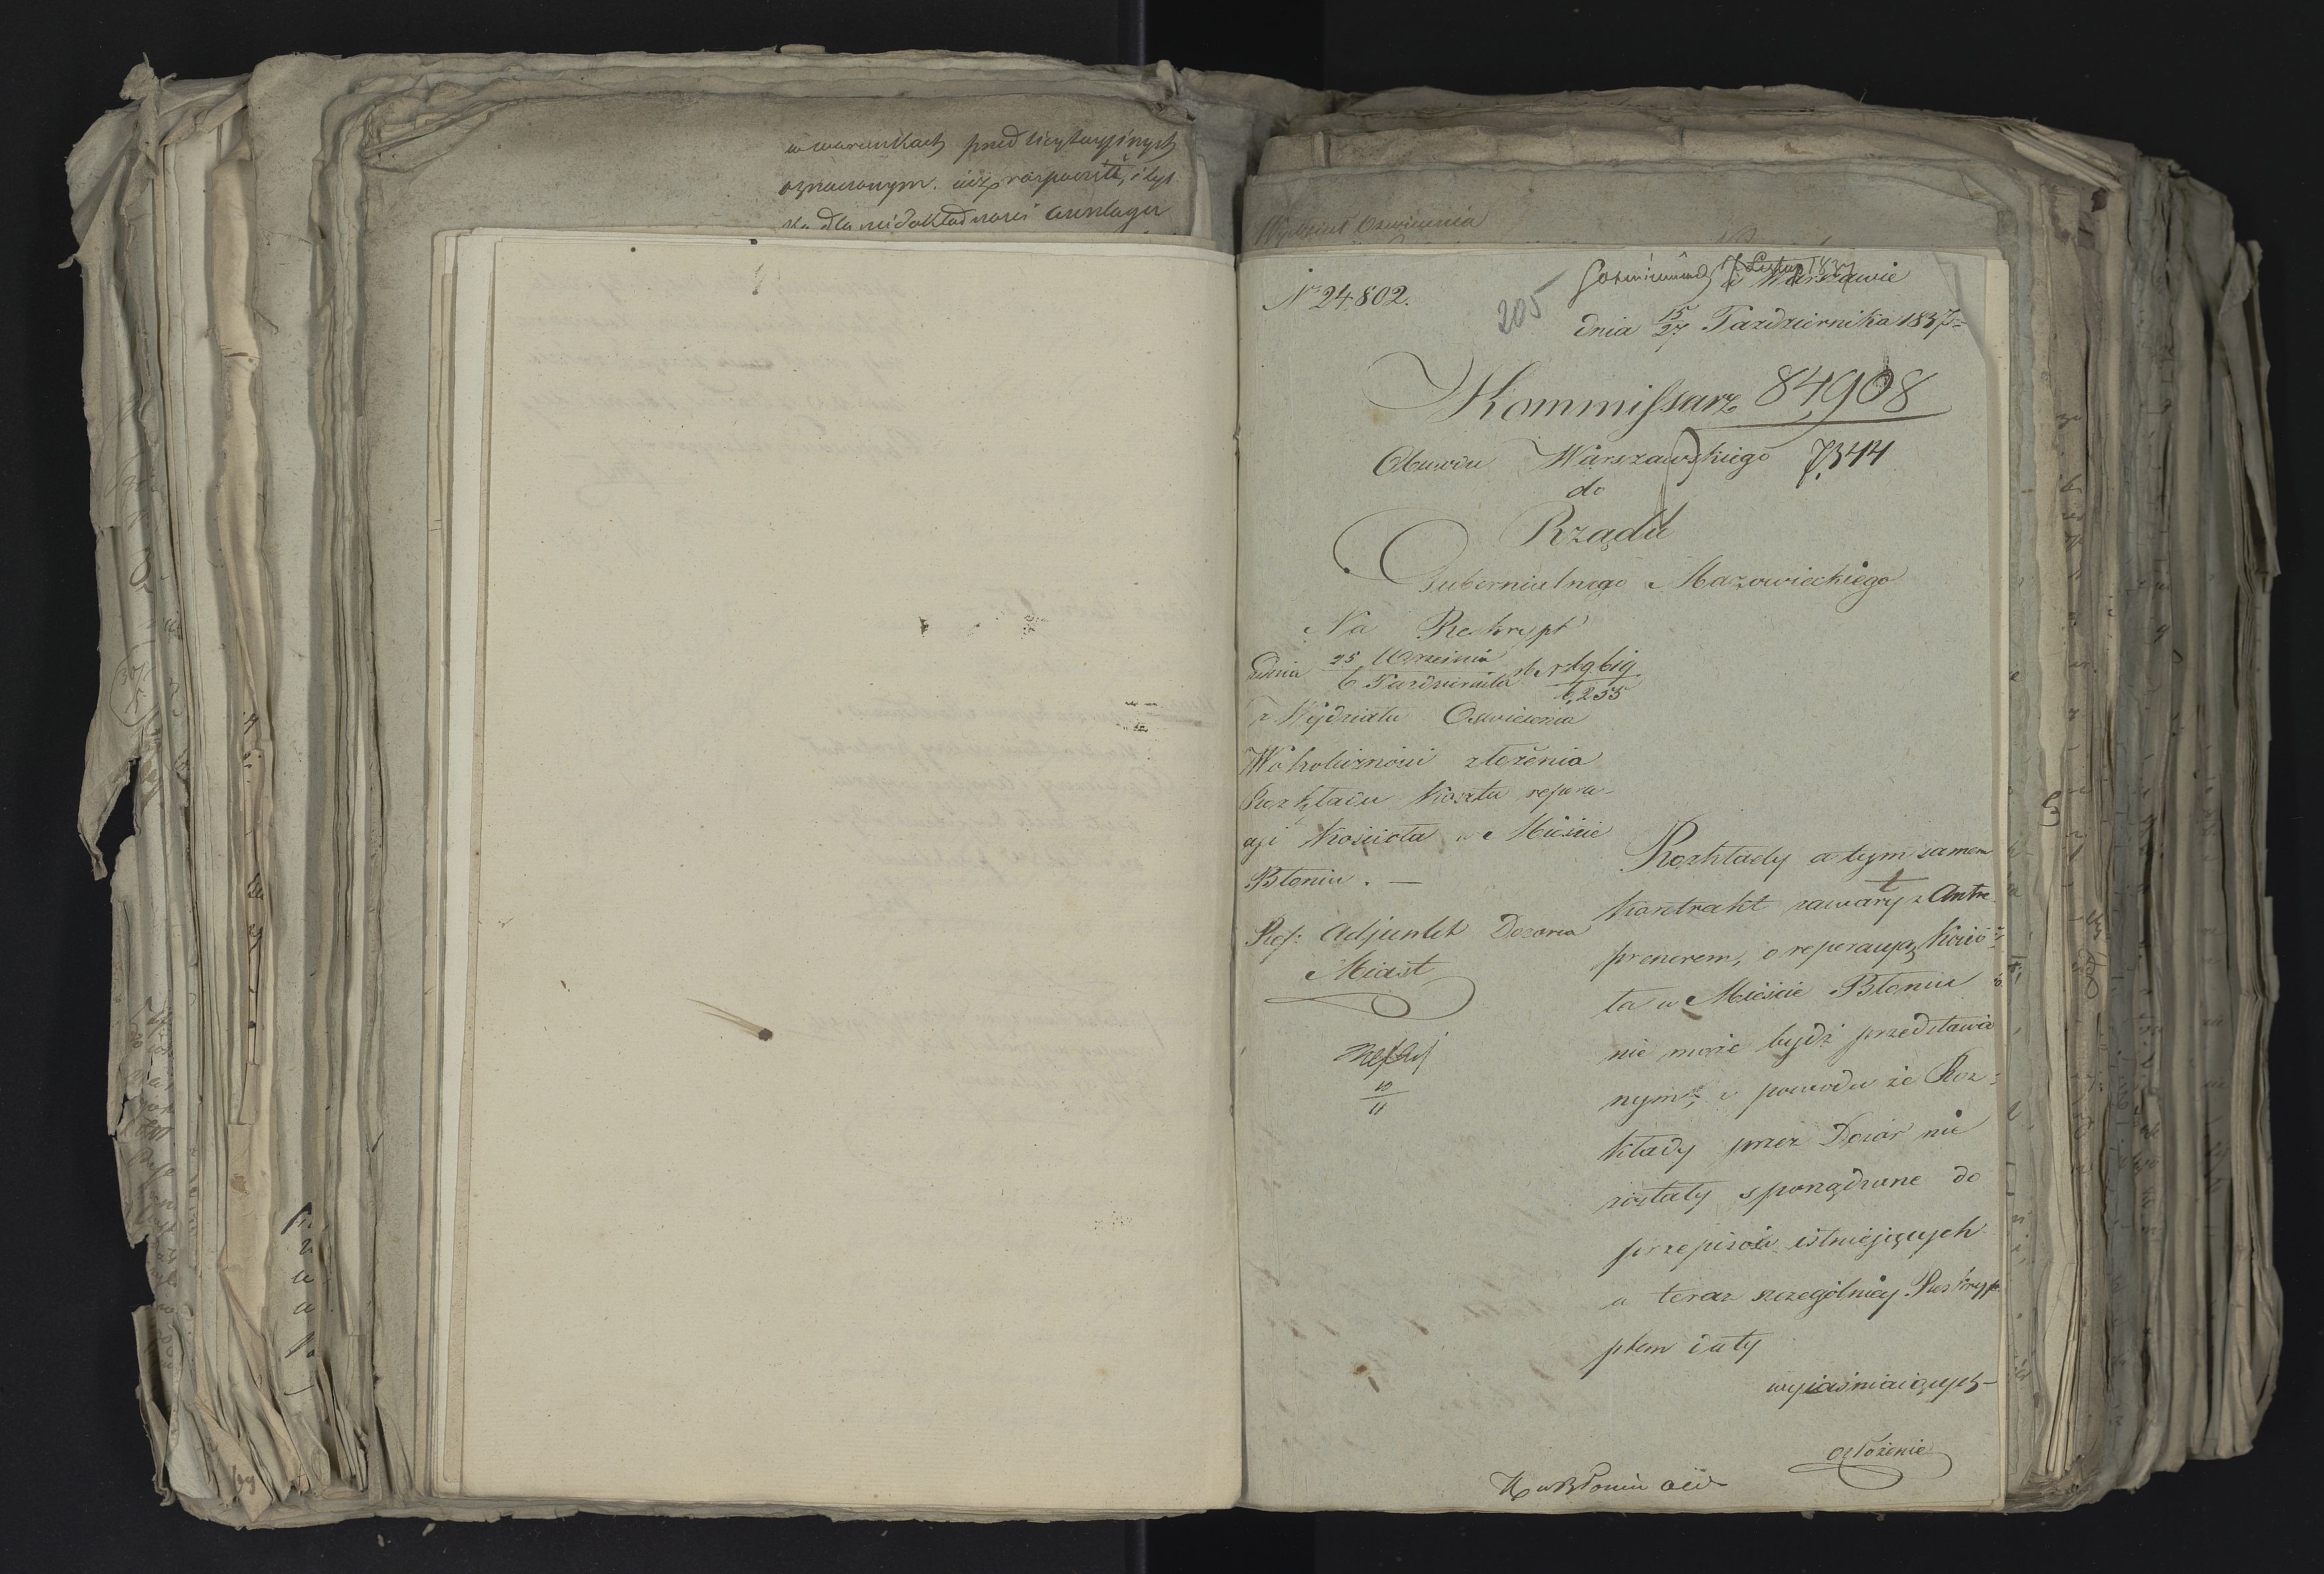 w warunkach przed licytacyjnych
oznaczonym, iuż rozpoczął, i tyl
ko dla niedokładności
Wydział Oswiecenia
Nr 24,802.
205
w Warszawie
dnia 15/27 Pazdziernika 1837
Kommissarz 84,908
Obwodu Warszawskiego 7344
do
Rządu
Gubernialnego Mazowieckiego
Na Reskrypt
z dnia 25 Wrzesnia
6 Pazdziernika
6,255
z Wydziału Oswiecenia
W okolicznosci złożenia
Rozkładu Kosztu repera-
cyi Kościoła w Mieście
Błoniu. —
Ref: Adjunkt Dozorca
Miast
10
11
Rozkłady a tym samem
Kontrakt zawarty z Antre
prenerem, o reperacyą Kośció-
ła w Mieście Błoniu
nie może bydź przedstawio
nym, z powodu że Roz-
kłady przez Dozór nie
zostały sporządzone do
przepisów istniejących
a teraz szczegolniey Reskryp
ptem daty
wyiaśniaiących
ozłożenie
K. w Błoniu